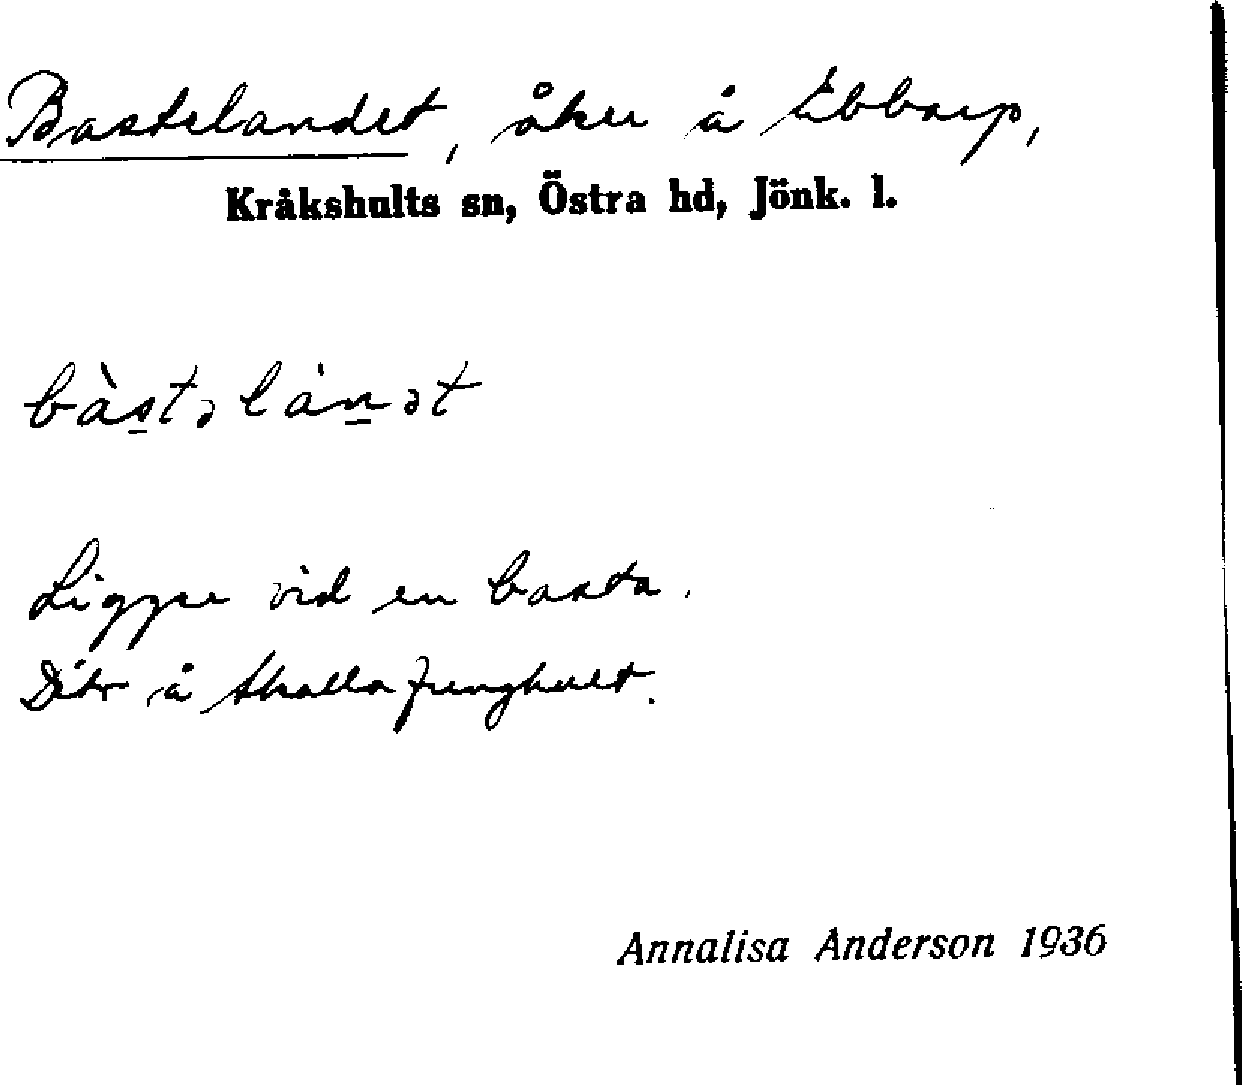 Bastelandet, åker å Ebbarp,
Kråkshults sn, Östra hd, Jönk. l.
bàstəlánət
Ligger vid en basta.
Ditr å Skalla Junghult.
Annalisa Anderson 1936